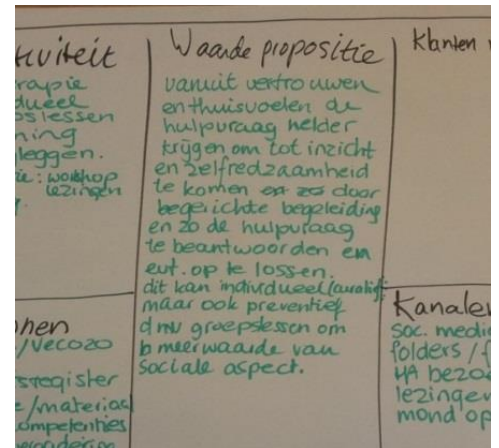 tiviteit
rapie
dueel
pslessen
ning
leggen.
ie: workshop
lezingen
Waarde propositie
vanuit vertrouwen
en thuisvoelen de
hulpvraag helder
krijgen om tot inzicht
en zelfredzaamheid
te komen en zo door
begerichte begeleiding
en zo de hulpvraag
te beantwoorden en
evt. op te lossen.
dit kan individueel/curatief
maar ook preventief
dmv groepslessen om
meerwaarde van
sociale aspect.
Klanten
nen
/Vecozo
sregister
e/materiaal
ompetenties
Kanalen
soc. media
folders / f
HA bezoe
lezingen
mond op